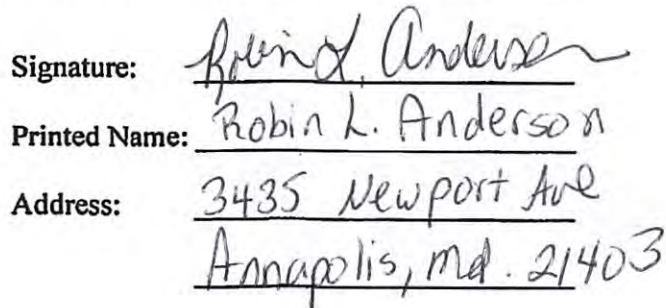 Signature: Robin L. Anderson
Printed Name: Robin L. Anderson
Address: 3435 Newport Ave
Annapolis, Md. 21403